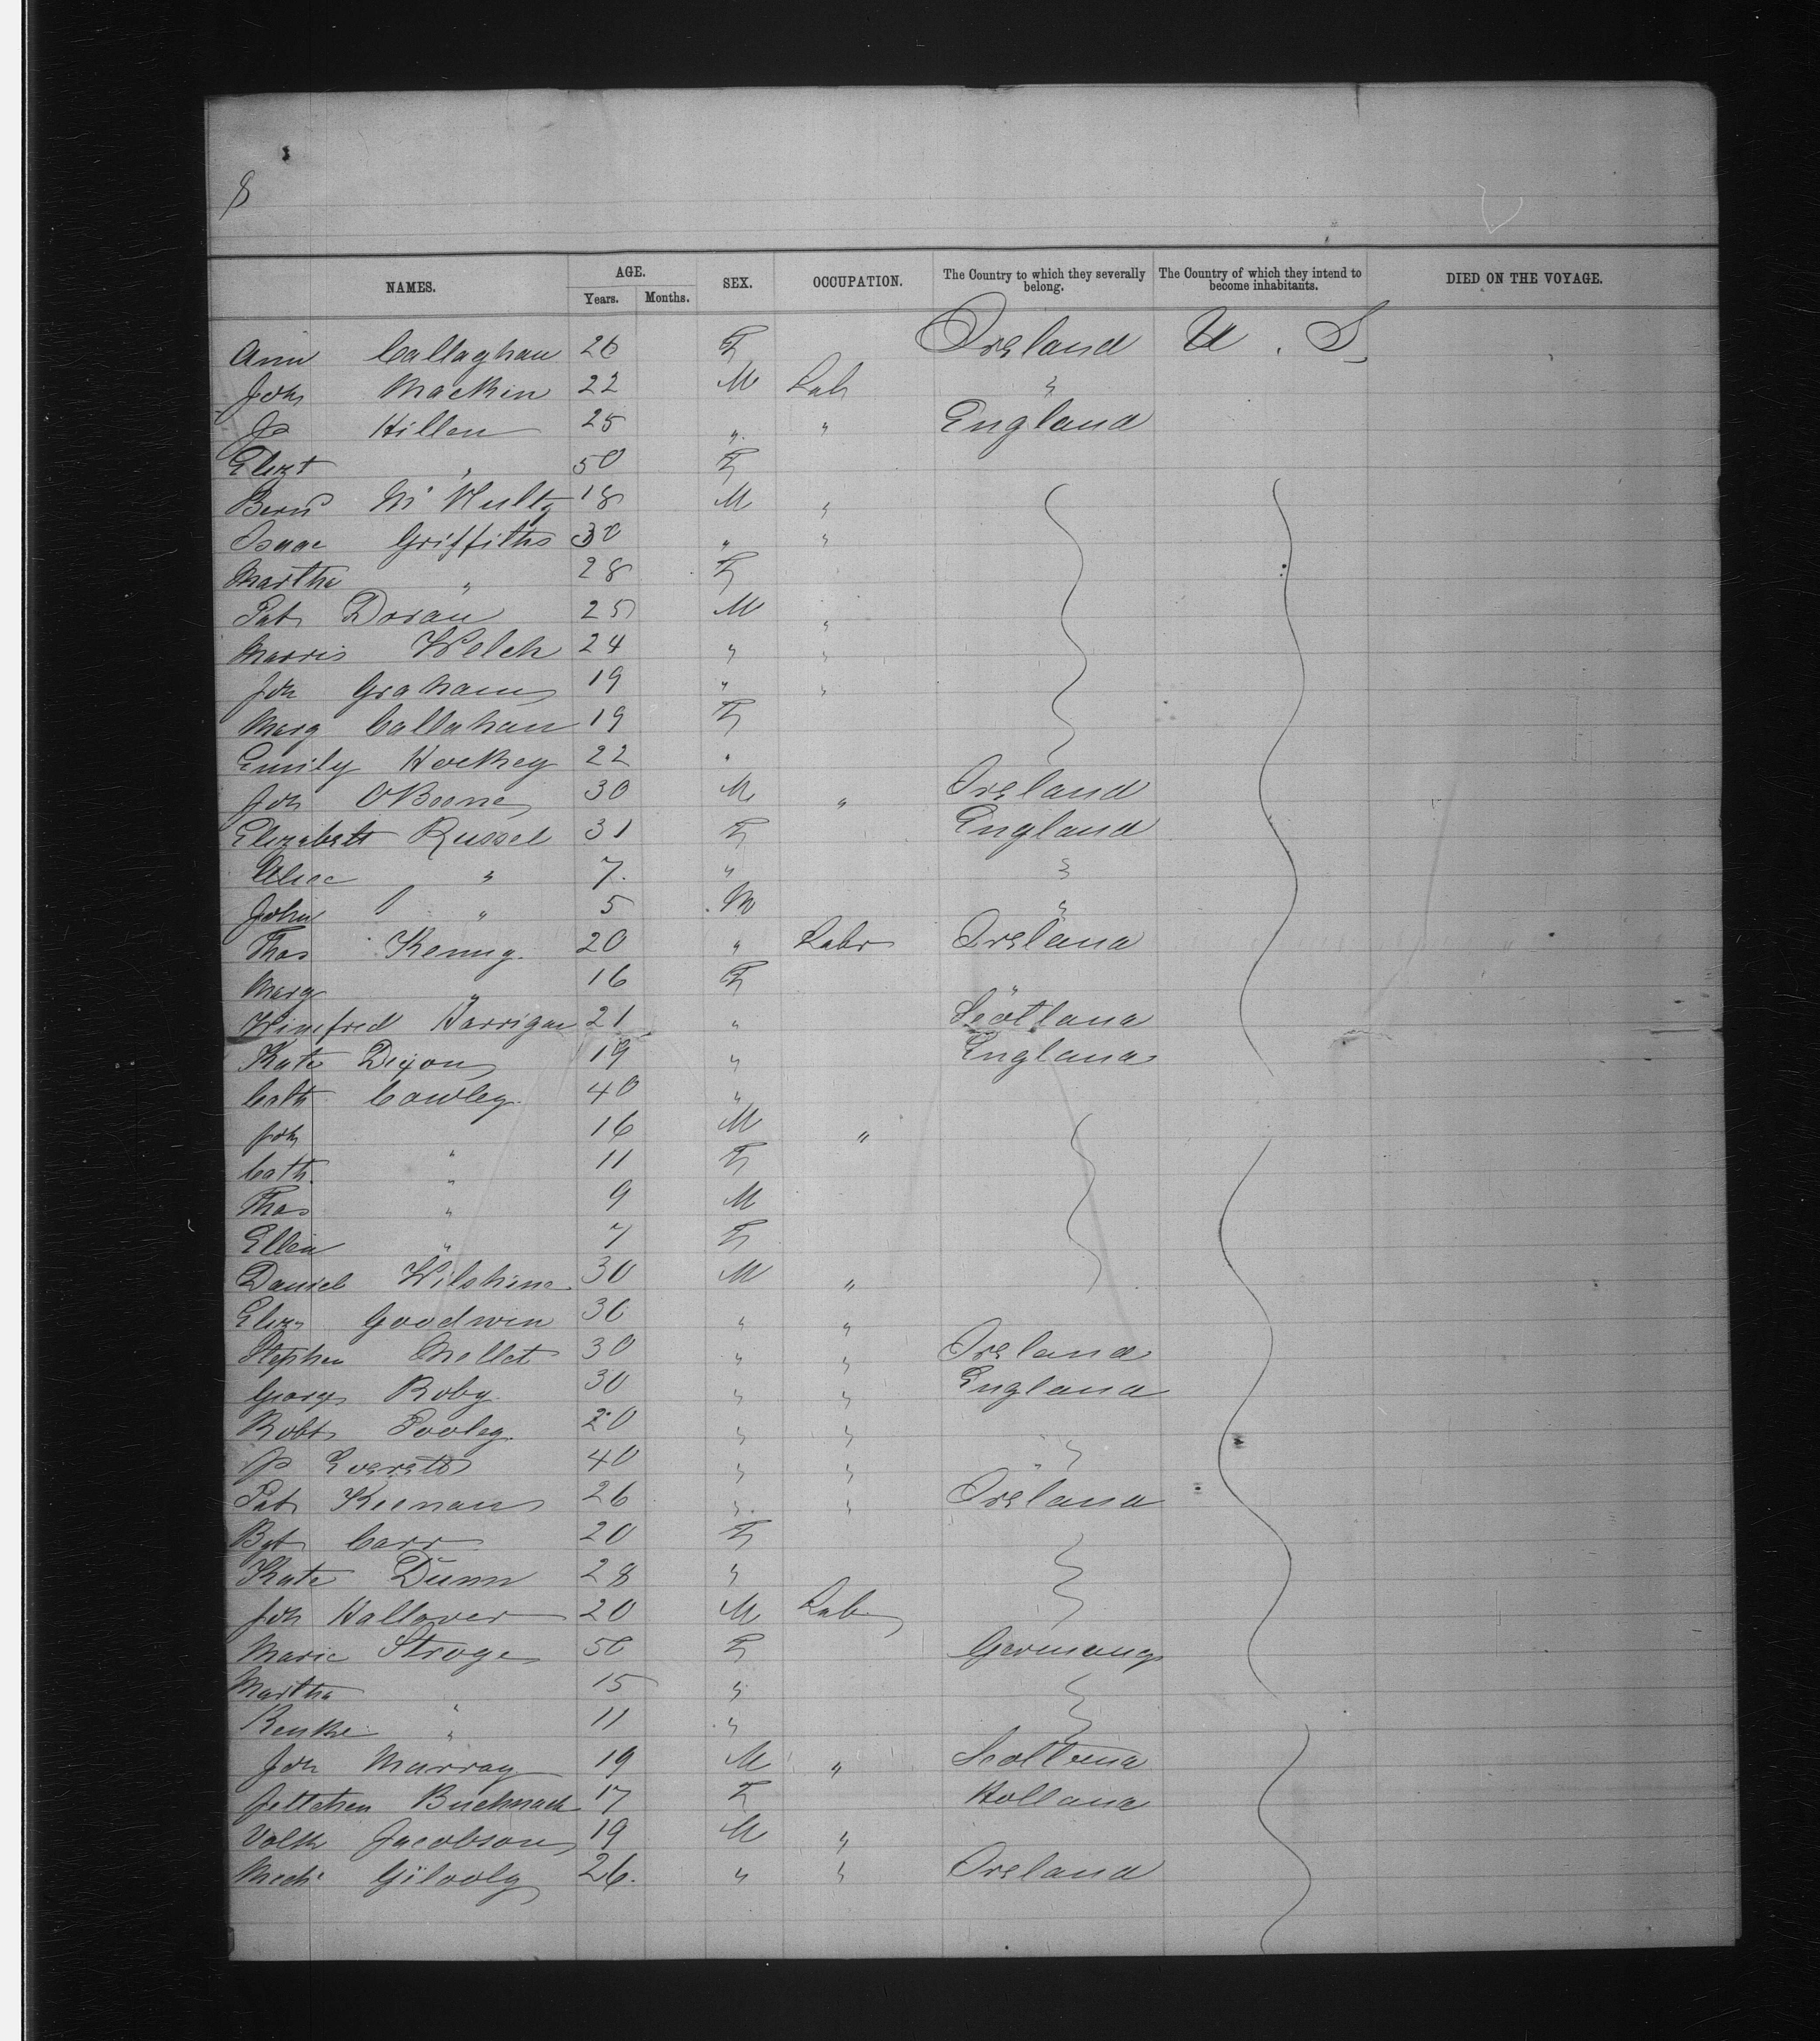 8
NAMES. AGE. Years. Months. SEX. OCCUPATION. The Country to which they severally belong. The Country of which they intend to become inhabitants. DIED ON THE VOYAGE.
Ann Callaghan 26 F Ireland U. S
Joh Mackin 22 M Lab "
Jo Hillen 25 " " England
Elizt " 50 F
Bernd McNulty 18 M "
Isaac Griffiths 30 " "
Martha " 28 F
Pat Doran 25 M "
Morris Welch 24 " "
Joh Graham 19 " "
Marg Callahan 19 F
Emily Hockey 22 "
Joh 30 M " Ireland
Elizabeth Russel 31 F England
Alice " 7. " "
John " 5 M "
Thos Kenny. 20 " Labr Ireland
Marg " 16 F "
Winifred Harrigan 21 " Scotland
Kate Dixon 19 " England
Cath Cowley. 40 "
Joh " 16 M "
Cath. " 11 F
Thos " 9 M
Ellen " 7 F
Daniel Wilshire 30 M "
Eliz Goodwin 36 " "
Stephen Mellet 30 " " Ireland
George Roby. 30 " " England
Robt Pooley. 20 " " "
Jo Everett 40 " " "
Pat Keenan 26 " " Ireland
Bgt Carr 20 F
Kate Dunn 28 "
Joh Hallover 20 M Lab
Marie Stroge 50 F Germany
Martha " 15 "
Renke " 11 "
Joh Murray 19 M " Scotland
Jettchen 17 F Holland
Volk Jacobson 19 M "
Mich Gilooly 26. " " Ireland